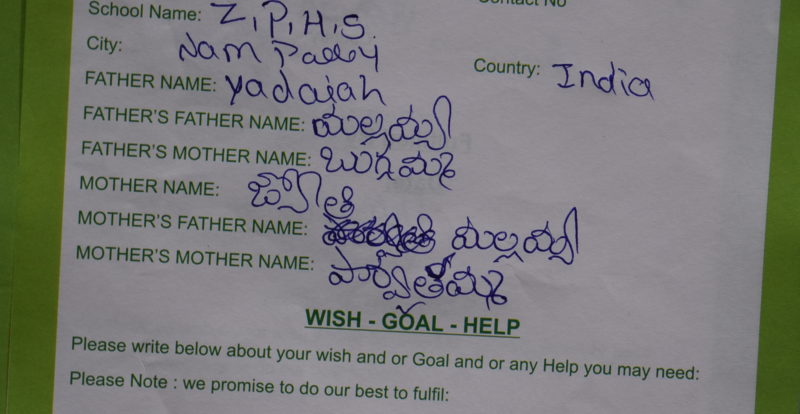 School Name: Z.P.H.S. Contact No
City: Nam Pally
Country: India
FATHER NAME: Yadaiah
FATHER'S FATHER NAME: మల్లయ్య
FATHER'S MOTHER NAME: బుగ్గమ్మ
MOTHER NAME: జ్యోతి
MOTHER'S FATHER NAME: మల్లయ్య
MOTHER'S MOTHER NAME: పార్వతమ్మ
WISH - GOAL - HELP
Please write below about your wish and or Goal and or any Help you may need:
Please Note : we promise to do our best to fulfil: